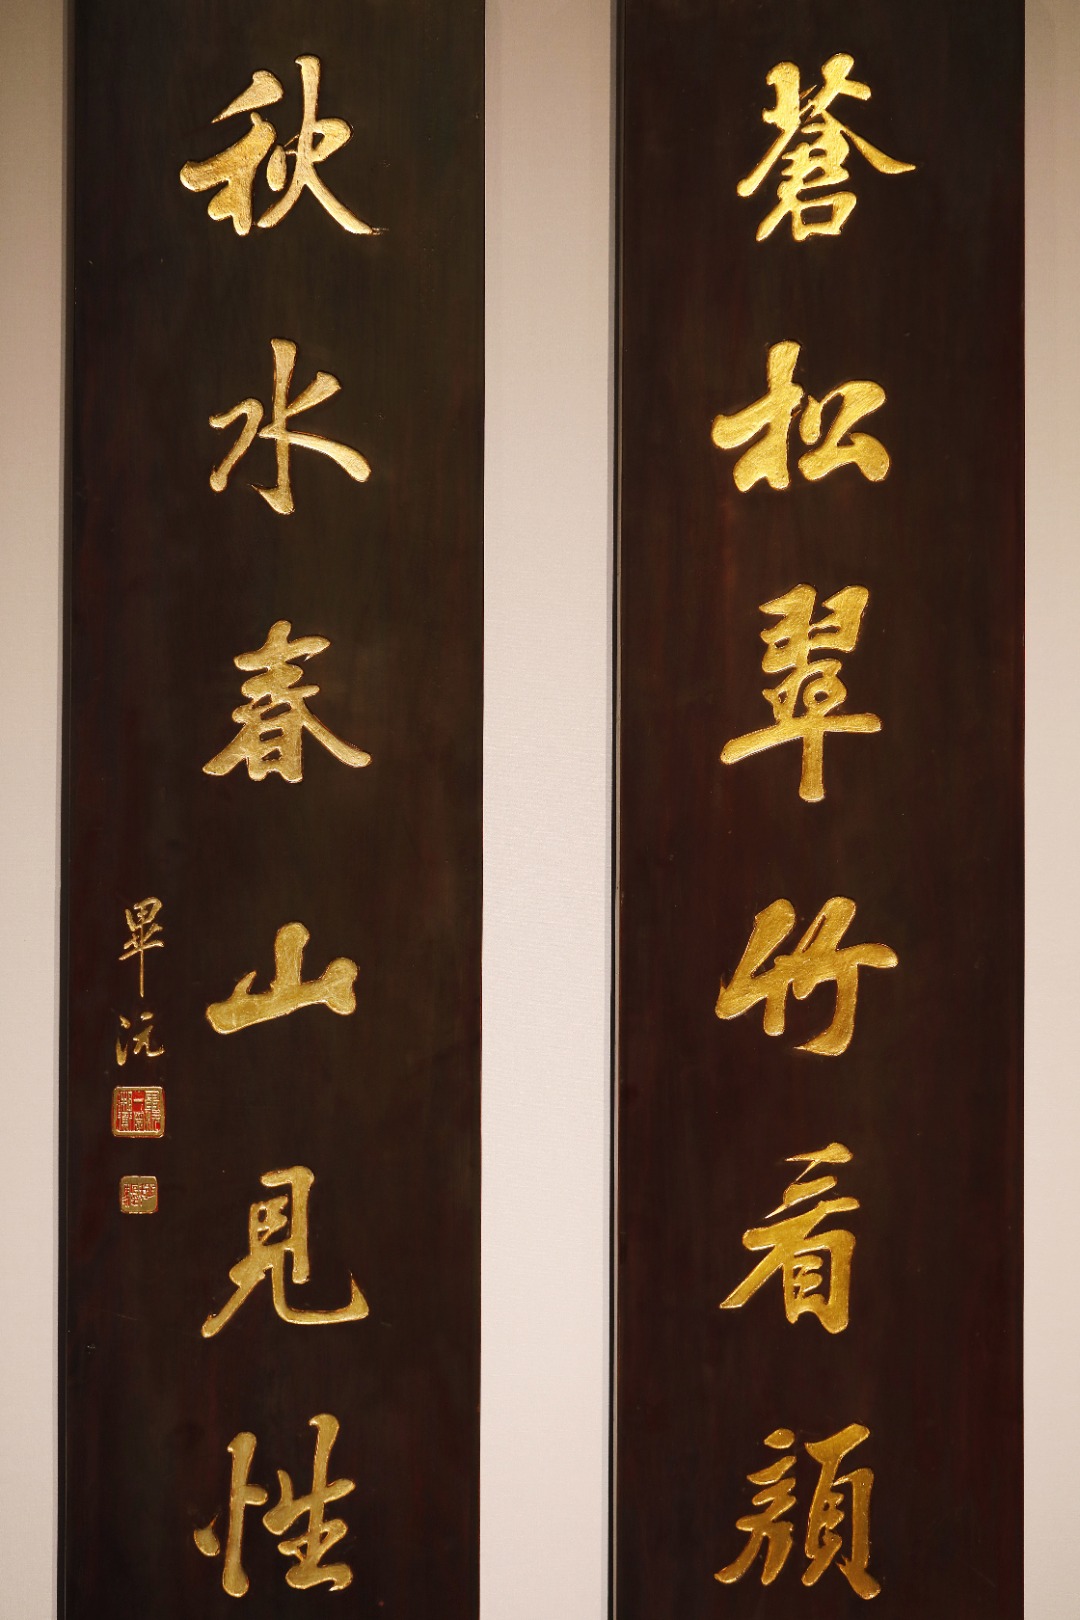 蒼松翠竹看顔
秋水春山見性
畢沅